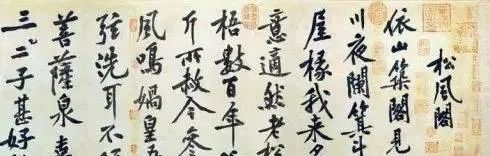 松風閣
依山築閣見
川夜闌箕斗
屋椽我來
意適然老松
梧數百年
斤所赦今參
風鳴媧皇五
弦洗耳不
菩薩泉嘉
三二子甚好